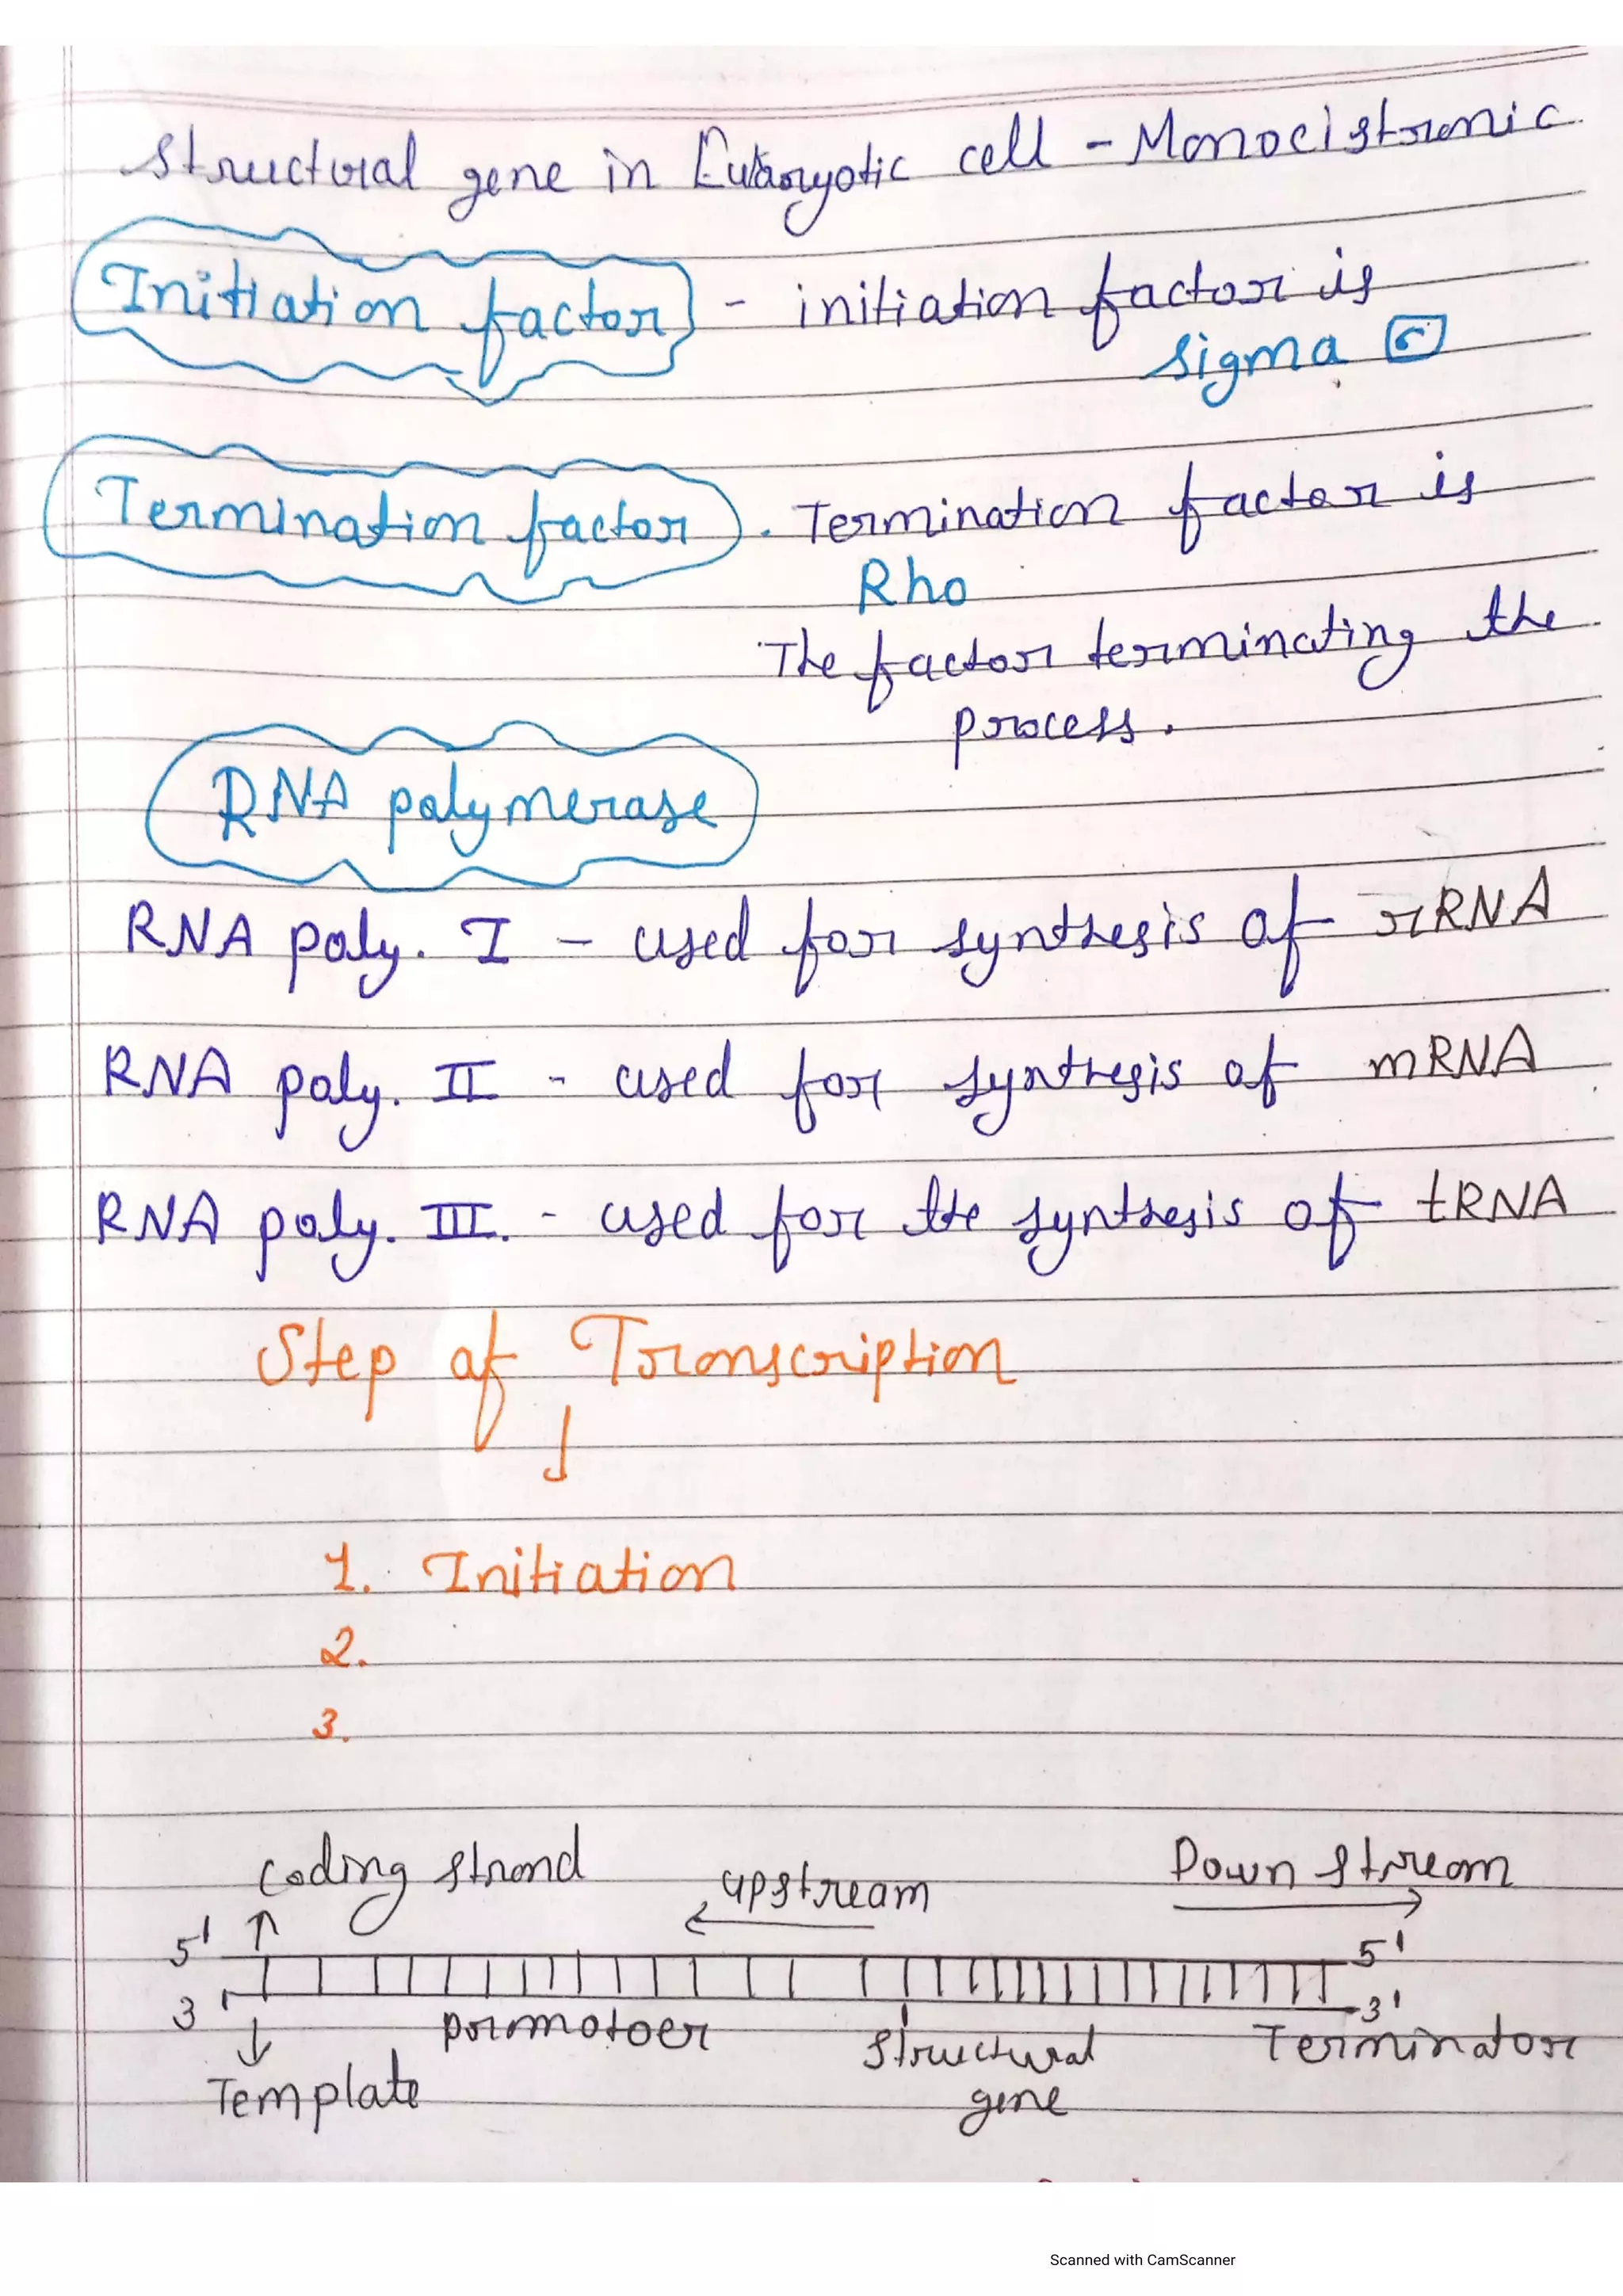 Structural gene in Eukaryotic cell - Monocistronic.
Initiation factor - initiation factor is
sigma σ
Termination factor. Termination factor is
Rho
The factor terminating the
process.
RNA polymerase
RNA poly. I - used for synthesis of rRNA
RNA poly. II - used for synthesis of mRNA
RNA poly. III. - used for the synthesis of tRNA
Step of Transcription
1. Initiation
2.
3.
Coding strand upstream Down stream
5' 5'
3' 3'
promotoer structural Terminator
Template gene
Scanned with CamScanner